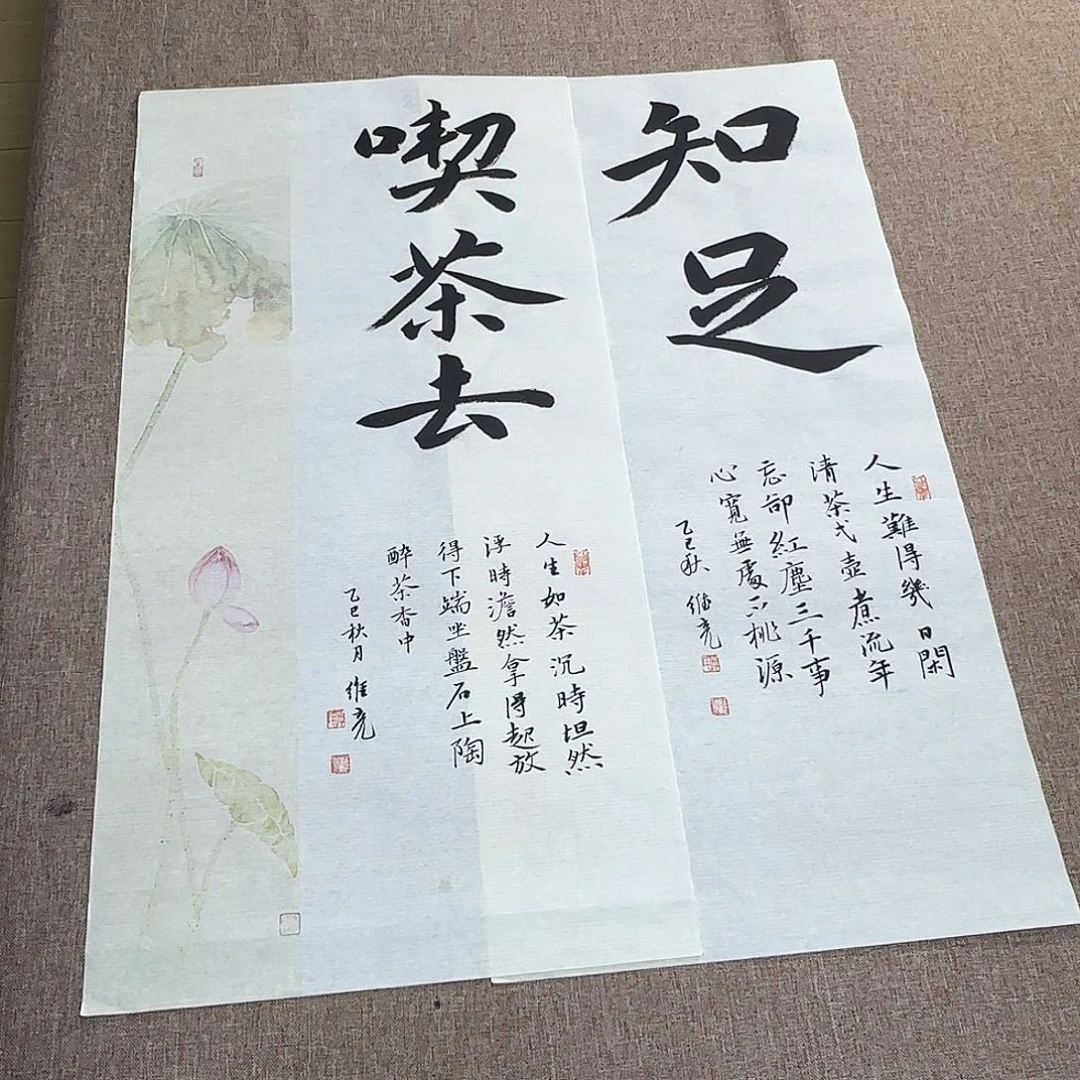 知足
人生難得幾日閑
清茶弌壺煮流年
忘卻紅塵三千事
心寬無處不桃源
乙巳秋 維亮
喫茶去
人生如茶沉時坦然
浮時澹然拿得起放
得下端坐盤石上陶
醉茶香中
乙巳秋月 維亮